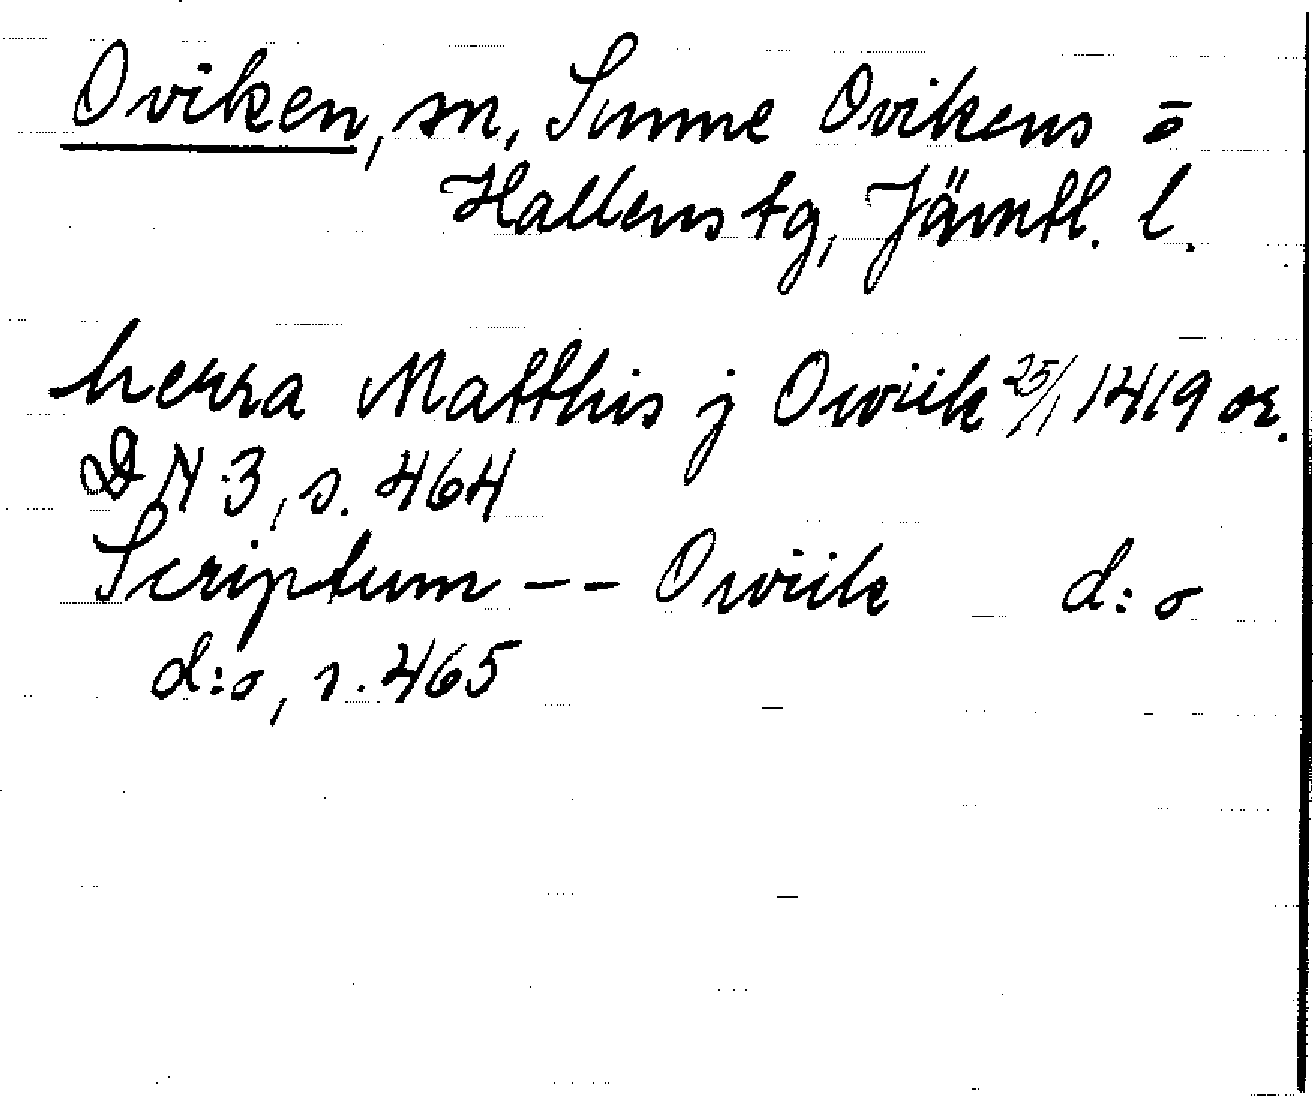 Oviken, sn, Sunne Ovikens o
Hallens tg, Jämtl. l.
herra Matthis j Owiik 25/1 1419 or.
DN 3, s. 464
Scriptum - - Owiik d:o
d:o, s. 465